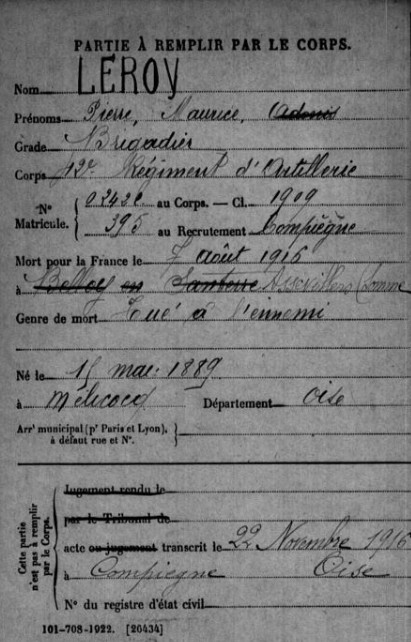 PARTIE À REMPLIR PAR LE CORPS.
Nom LEROY
Prénoms Pierre, Maurice, Adonis
Grade Brigadier
Corps 42e Régiment d'Artillerie
N° Matricule. { 02432 au Corps. — Cl. 1909
395 au Recrutement Compiègne
Mort pour la France le 7 août 1916
à Belloy en Santerre Assevillers Somme
Genre de mort Tué à l'ennemi
Né le 15 mai 1889
à Mélicocq Département Oise
Arrt municipal (pr Paris et Lyon), à défaut rue et N°. }
Cette partie n'est pas à remplir par le Corps.
Jugement rendu le
par le Tribunal de
acte ou jugement transcrit le 22 Novembre 1916
à Compiègne Oise
N° du registre d'état civil
101-708-1922. [26434]